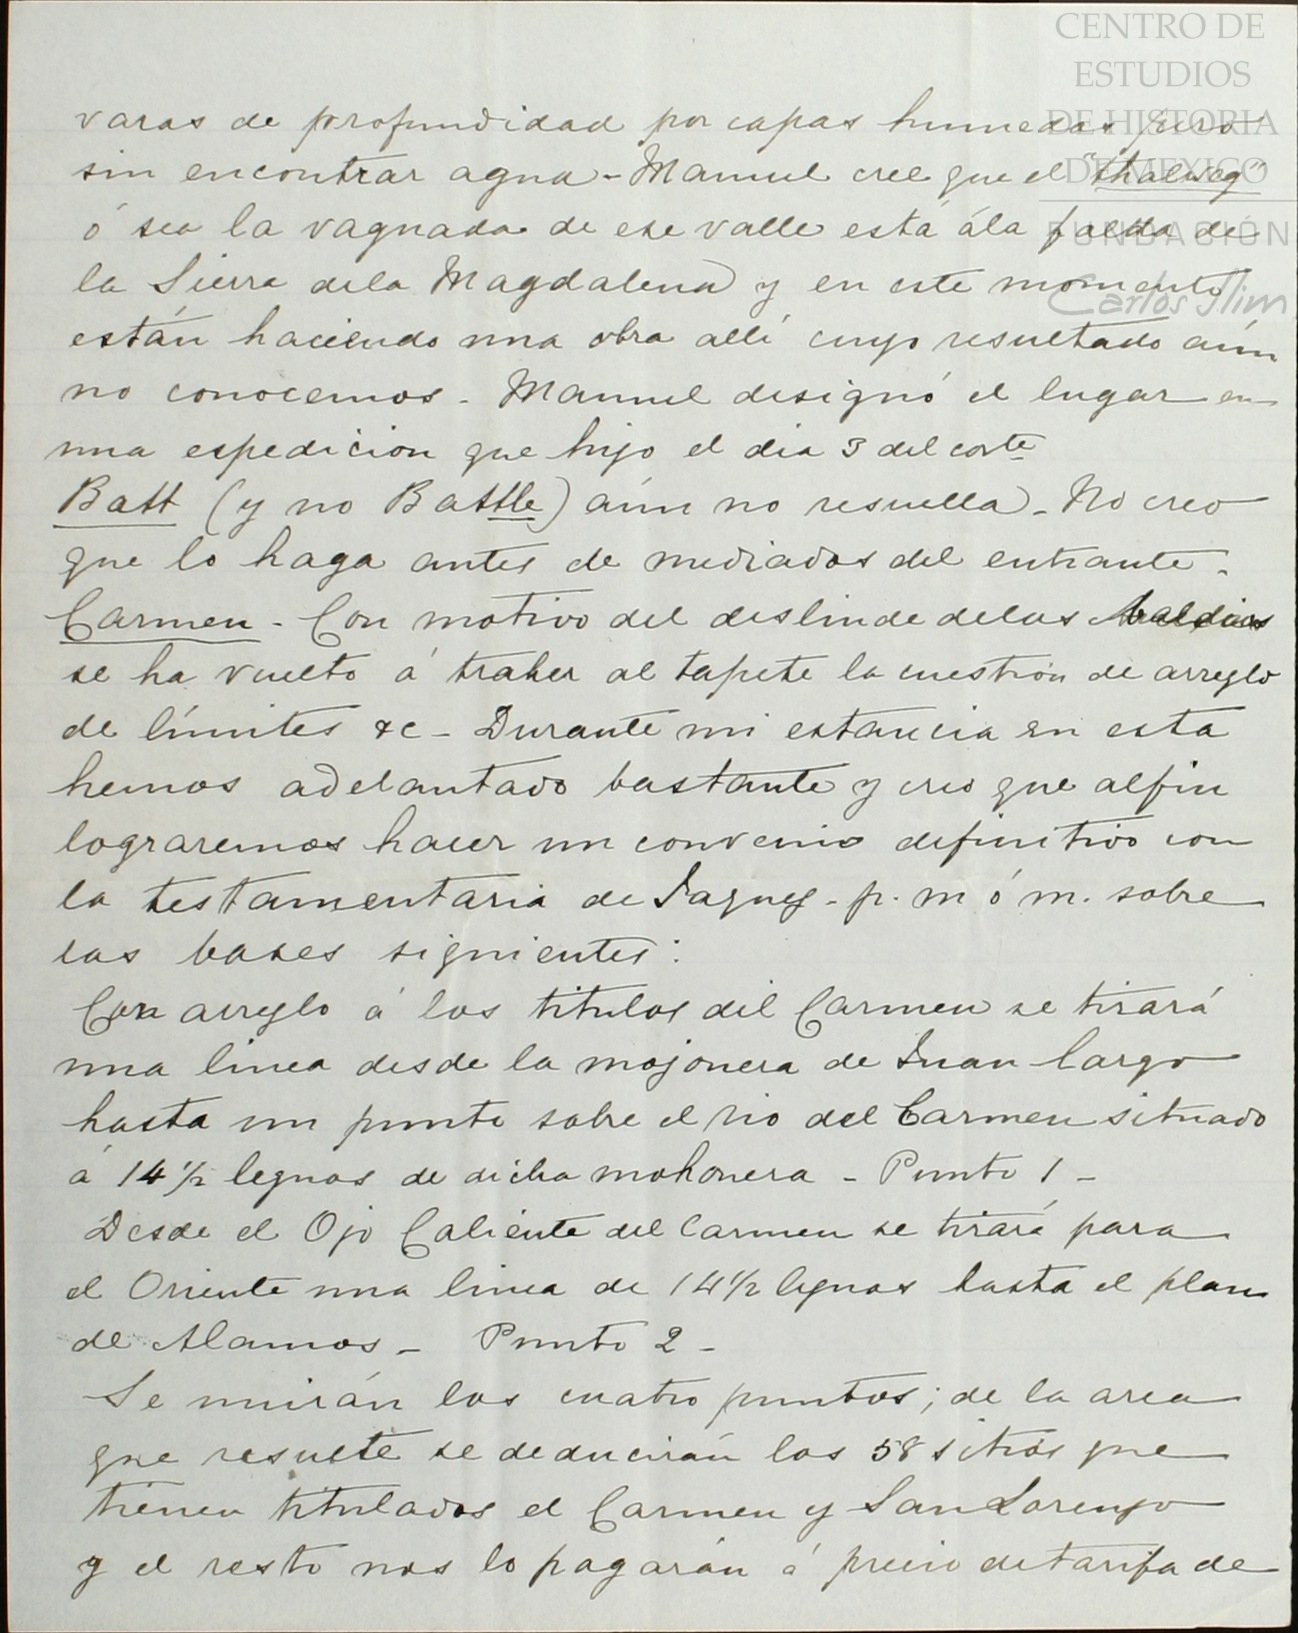 CENTRO DE
ESTUDIOS
DE HISTORIA
DE MEXICO
FUNDACIÓN
Carlos Slim
varas de profundidad por capas humedas pero
sin encontrar agua - Manuel cree que el "thalweg"
ó sea la vaguada de ese valle está ála falda de
la Sierra dela Magdalena y en este momento
están haciendo una obra allí cuyo resultado aún
no conocemos - Manuel designó el lugar en
una espedicion que hijo el dia 3 del corte
Batt (y no Battle) aún no resuella - No creo
que lo haga antes de mediados del entrante -
Carmen - Con motivo del deslinde delos baldios
se ha vuelto á traher al tapete la cuestion de arreglo
de límites &c - Durante mi estancia en esta
hemos adelantado bastante y creo que alfin
lograremos hacer un convenio definitivo con
la testamentaria de Jaquez - p. m ó m. sobre
las bases siguientes:
Con arreglo á los titulos del Carmen se tirará
una linea desde la mojonera de Juan Largo
hasta un punto sobre el rio del Carmen situado
á 14 1/2 leguas de dicha mohonera - Punto 1 -
Desde el Ojo Caliente del Carmen se tirará para
el Oriente una linea de 14 1/2 leguas hasta el plan
de Alamos - Punto 2 -
Se unirán los cuatro puntos; de la area
que resulte se deducirán los 58 sitios que
tienen titulados el Carmen y San Lorenzo
y el resto nos lo pagarán á precio de tarifa de